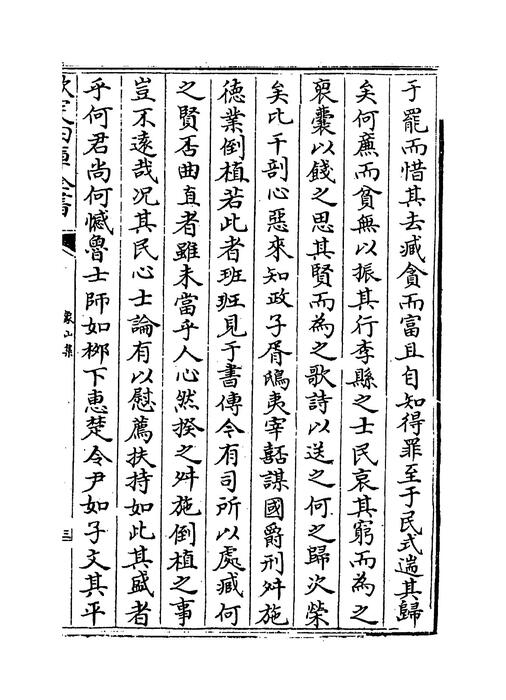 于罷而惜其去臧貪而富且自知得罪至于民式遄其歸
矣何亷而貧無以振其行李縣之士民哀其窮而為之
裒囊以錢之思其賢而為之歌詩以送之何之歸次榮
矣比干剖心惡來知政子胥鴟夷宰嚭謀國爵刑舛施
徳業倒植若此者班班見于書傳今有司所以處臧何
之賢否曲直者雖未當乎人心然揆之舛施倒植之事
豈不遠哉况其民心士論有以慰薦扶持如此其盛者
乎何君尚何憾魯士師如桺下恵楚令尹如子文其平
欽定四庫全書
象山集
三